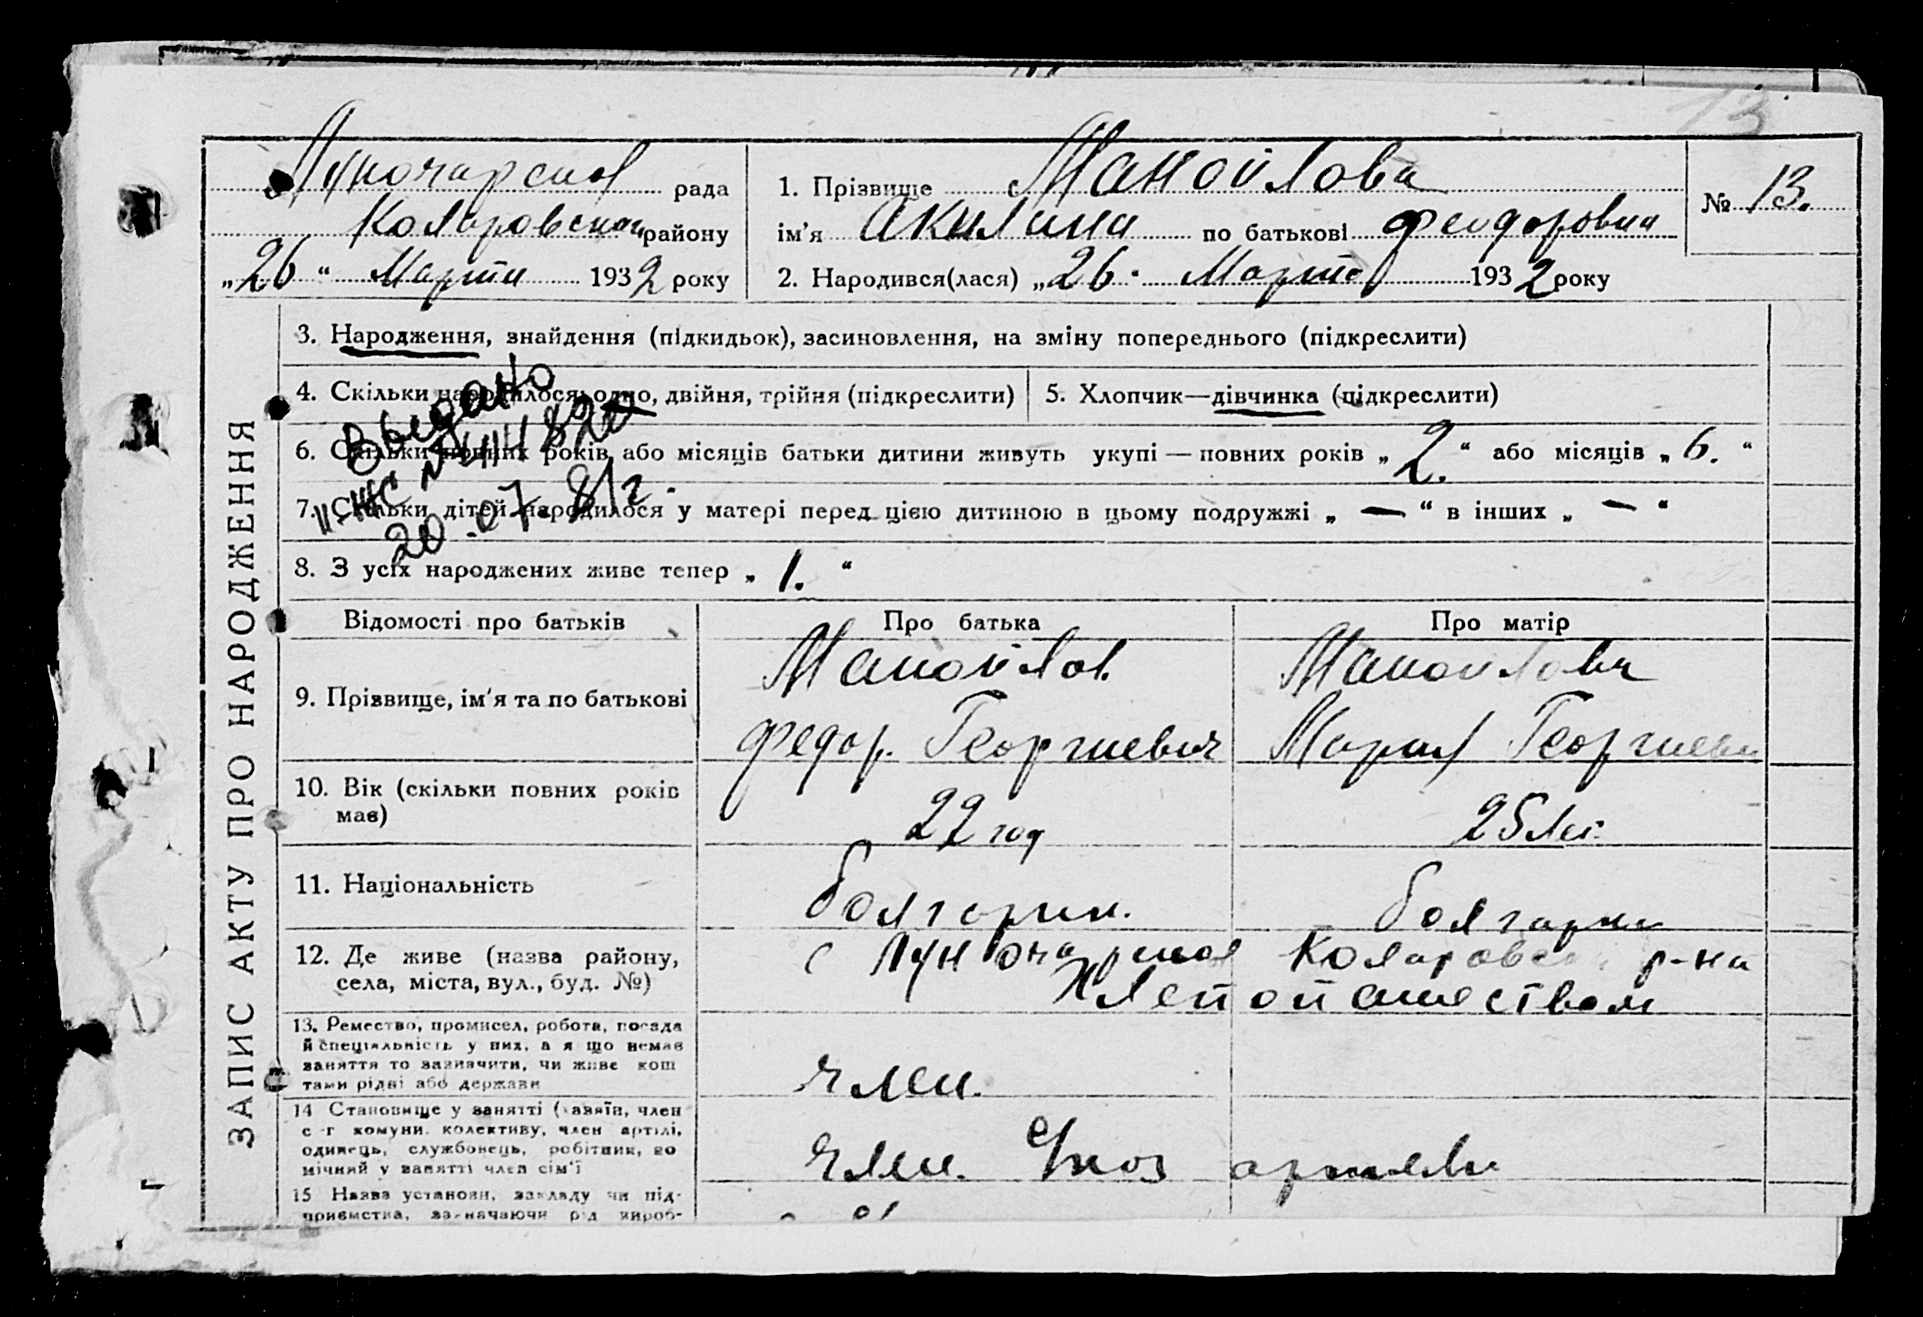 13
Луночарская рада
Коларовская району
„26“ Марта 1932 року
1. Прізвище Манойлова
ім'я Акилина по батькові Феодоровна
2. Народився(лася) „26. Марта 1932 року
№ 13.
3. Народження, знайдення (підкидьок), засиновлення, на зміну попереднього (підкреслити)
4. Скільки народилося: одно, двійня, трійня (підкреслити)
5. Хлопчик—дівчинка (підкреслити)
6. Скільки повних років або місяців батьки дитини живуть укупі — повних років „2.“ або місяців „6.“
7. Скільки дітей народилося у матері перед цією дитиною в цьому подружжі „—“ в інших „—“
8. З усіх народжених живе тепер „1.“
Выдано
II-ЖС №
20.07.81г.
ЗАПИС АКТУ ПРО НАРОДЖЕННЯ
Відомості про батьків Про батька Про матір
9. Прізвище, ім'я та по батькові
Манойлов. Федор. Георгиевич
Манойлова Мария Георгиевн
10. Вік (скільки повних років має)
22 год
25 лет.
11. Національність
болгарин.
болгарка
12. Де живе (назва району,
села, міста, вул., буд. №)
с Луночарская Коларовск р-на
13. Ремество, промисел, робота, посада
й спеціяльність у них, а я що немає
заняття то зазначити, чи живе кош
тами рідні або держави
Хлепопашеством
член.
14 Становище у занятті (хазяїн, член
с-г комуни. колективу, член артілі,
одинець, службовець, робітник, по
мічний у занятті член сім'ї
член. Сноз артели
15 Назва установи, закладу чи під-
приємства, зазначаючи рід вироб-